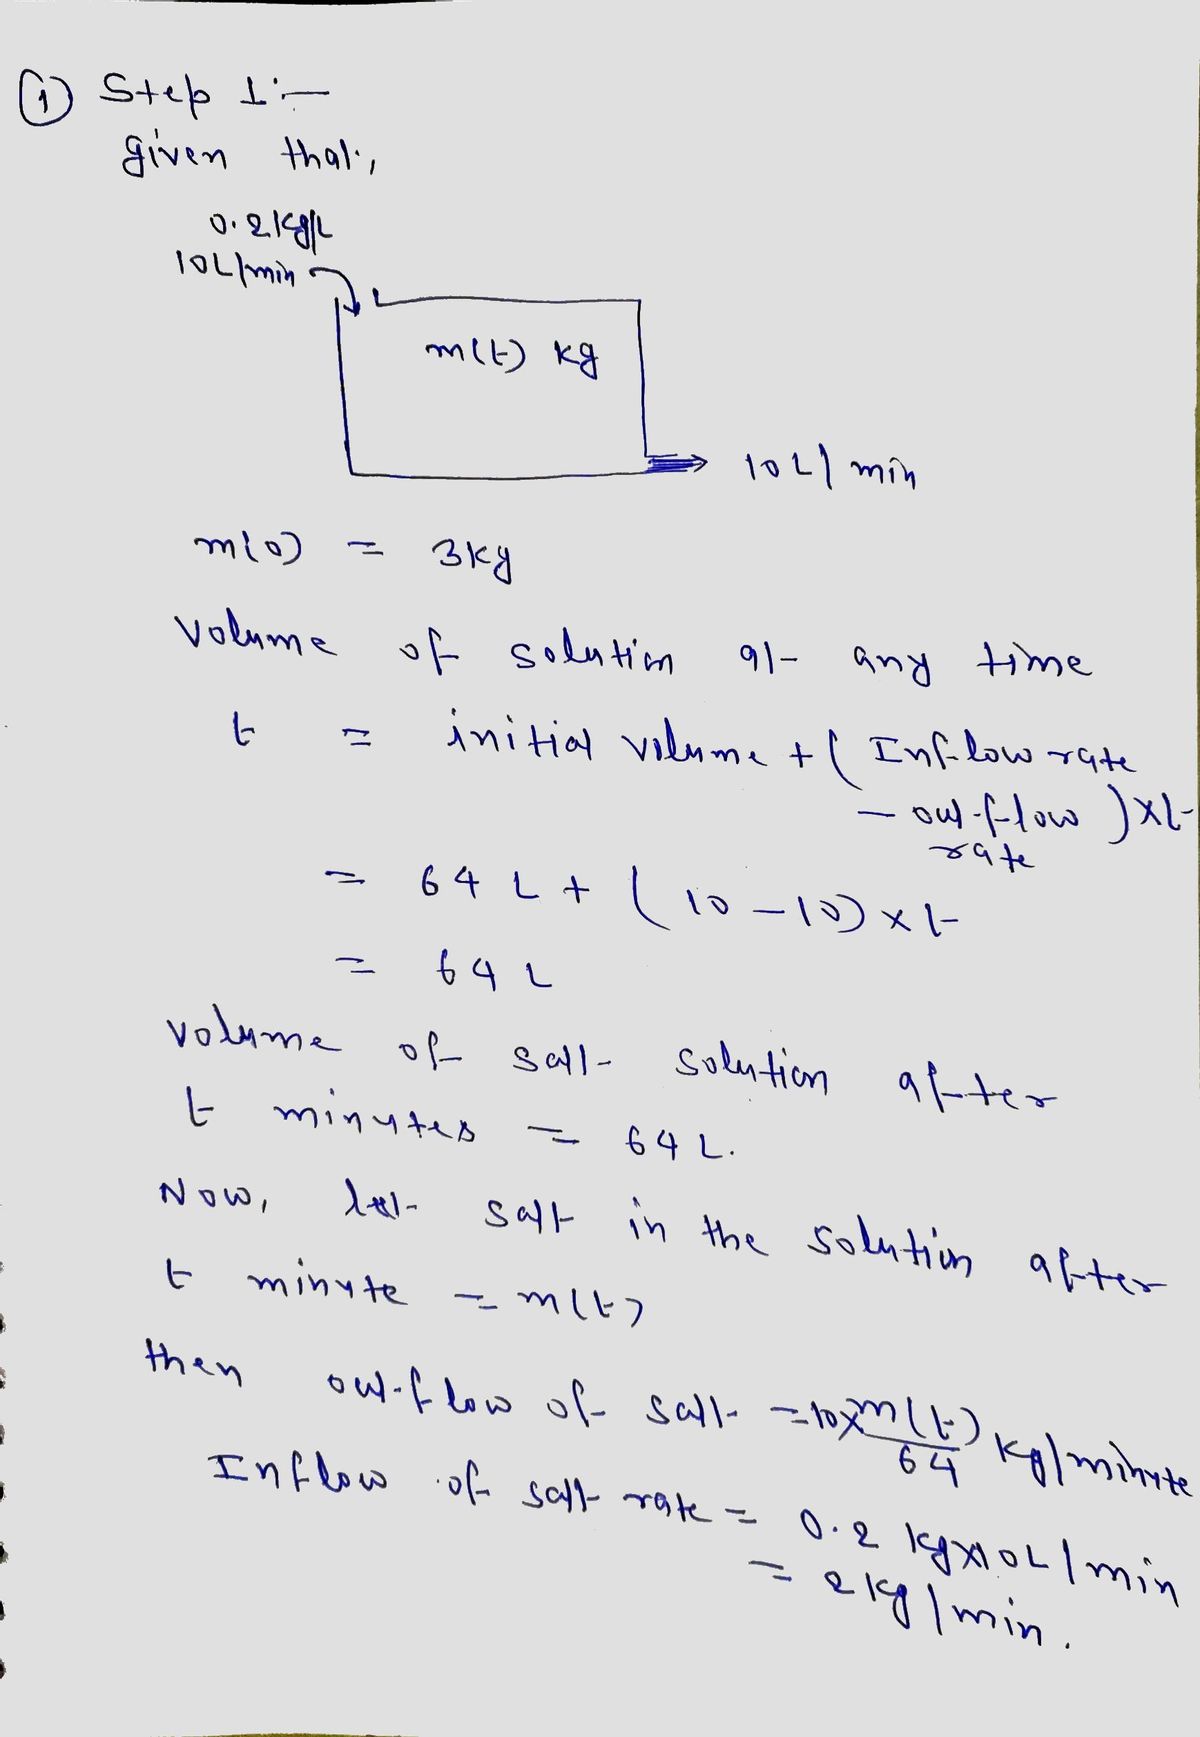 ① Step 1:—
given that,
0.2 kg/L
10L/min
m(t) kg
10L/min
m(0) = 3kg
Volume of solution at any time
t = initial volume + ( Inflow rate
— out-flow ) × t
rate
= 64 L + ( 10 – 10) × t
= 64 L
Volume of salt solution after
t minutes = 64 L.
Now, let salt in the solution after
t minute = m(t)
then out-flow of salt = 10×m(t)/64 kg/minute
Inflow of salt rate = 0.2 kg×10L/min
= 2kg/min.